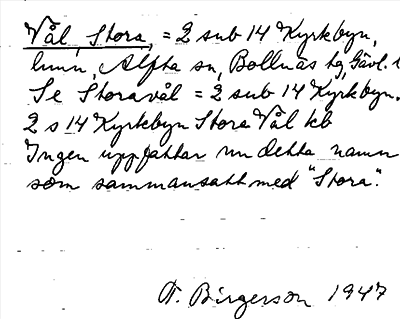 Vål, Stora, = 2 sub 14 Kyrkbyn,
hmn, Alfta sn, Bollnäs tg, Gävl. l
Se Storavål = 2 sub 14 Kyrkbyn.
2 s 14 Kyrkbyn Stora Vål kb
Ingen uppfattar nu detta namn
som sammansatt med "Stora".
F. Birgerson 1947